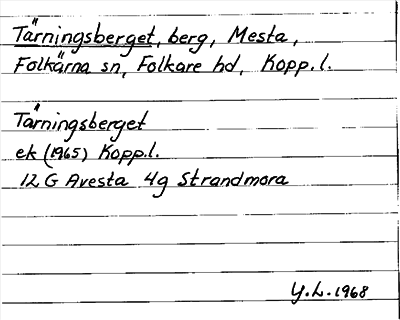 Tärningsberget, berg, Mesta,
Folkärna sn, Folkare hd, Kopp.l.
Tärningsberget
ek (1965) Kopp.l.
12 G Avesta 4g Strandmora
Y.L. 1968